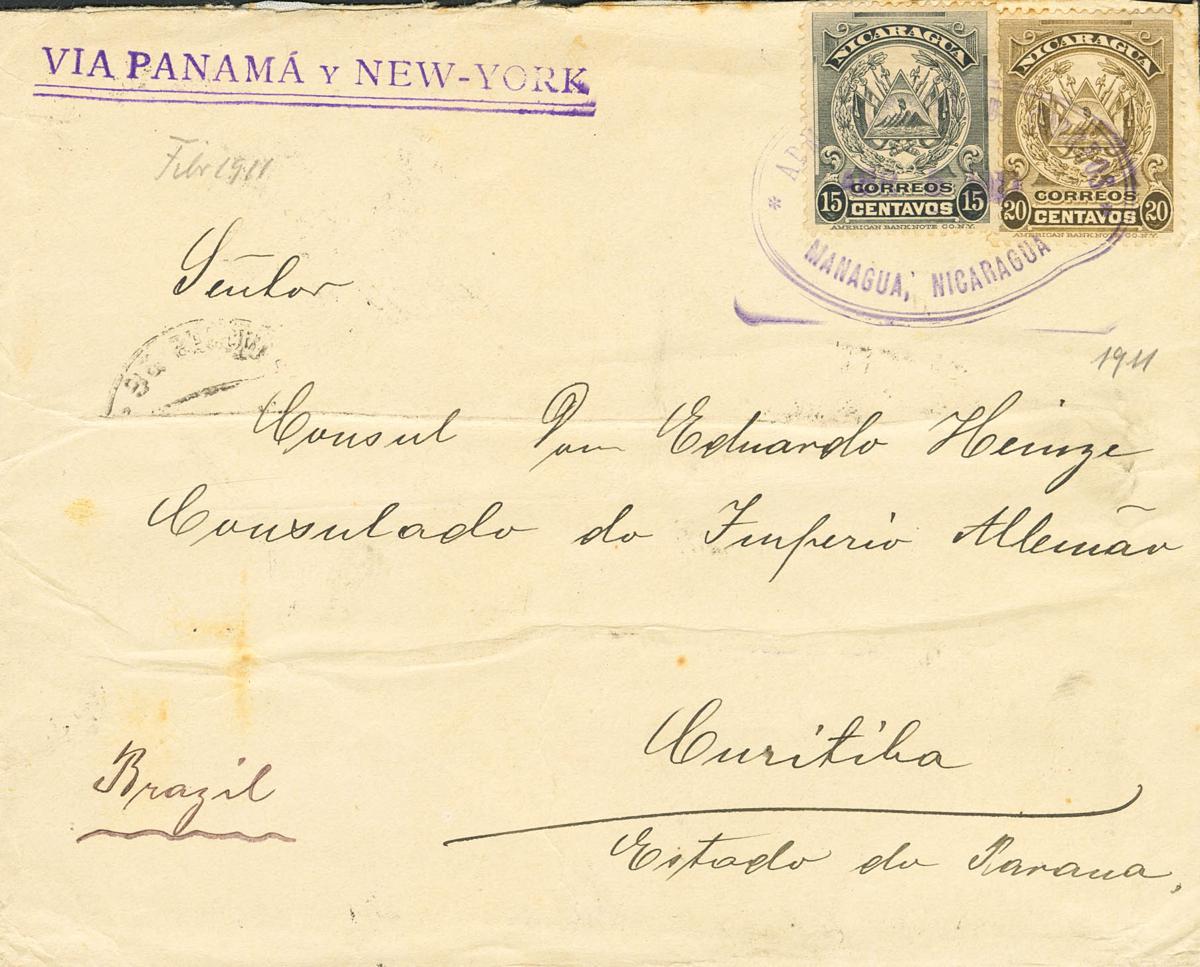 VIA PANAMÁ Y NEW-YORK
NICARAGUA
CORREOS
15 CENTAVOS 15
AMERICAN BANK NOTE CO. N.Y.
NICARAGUA
CORREOS
20 CENTAVOS 20
AMERICAN BANK NOTE CO. N.Y.
* *
MANAGUA, NICARAGUA
Febr 1911
Señhor
1911
Consul Dom Eduardo Heinze
Consulado do Imperio Allemão
Curitiba
Brazil
Estado do Parana,